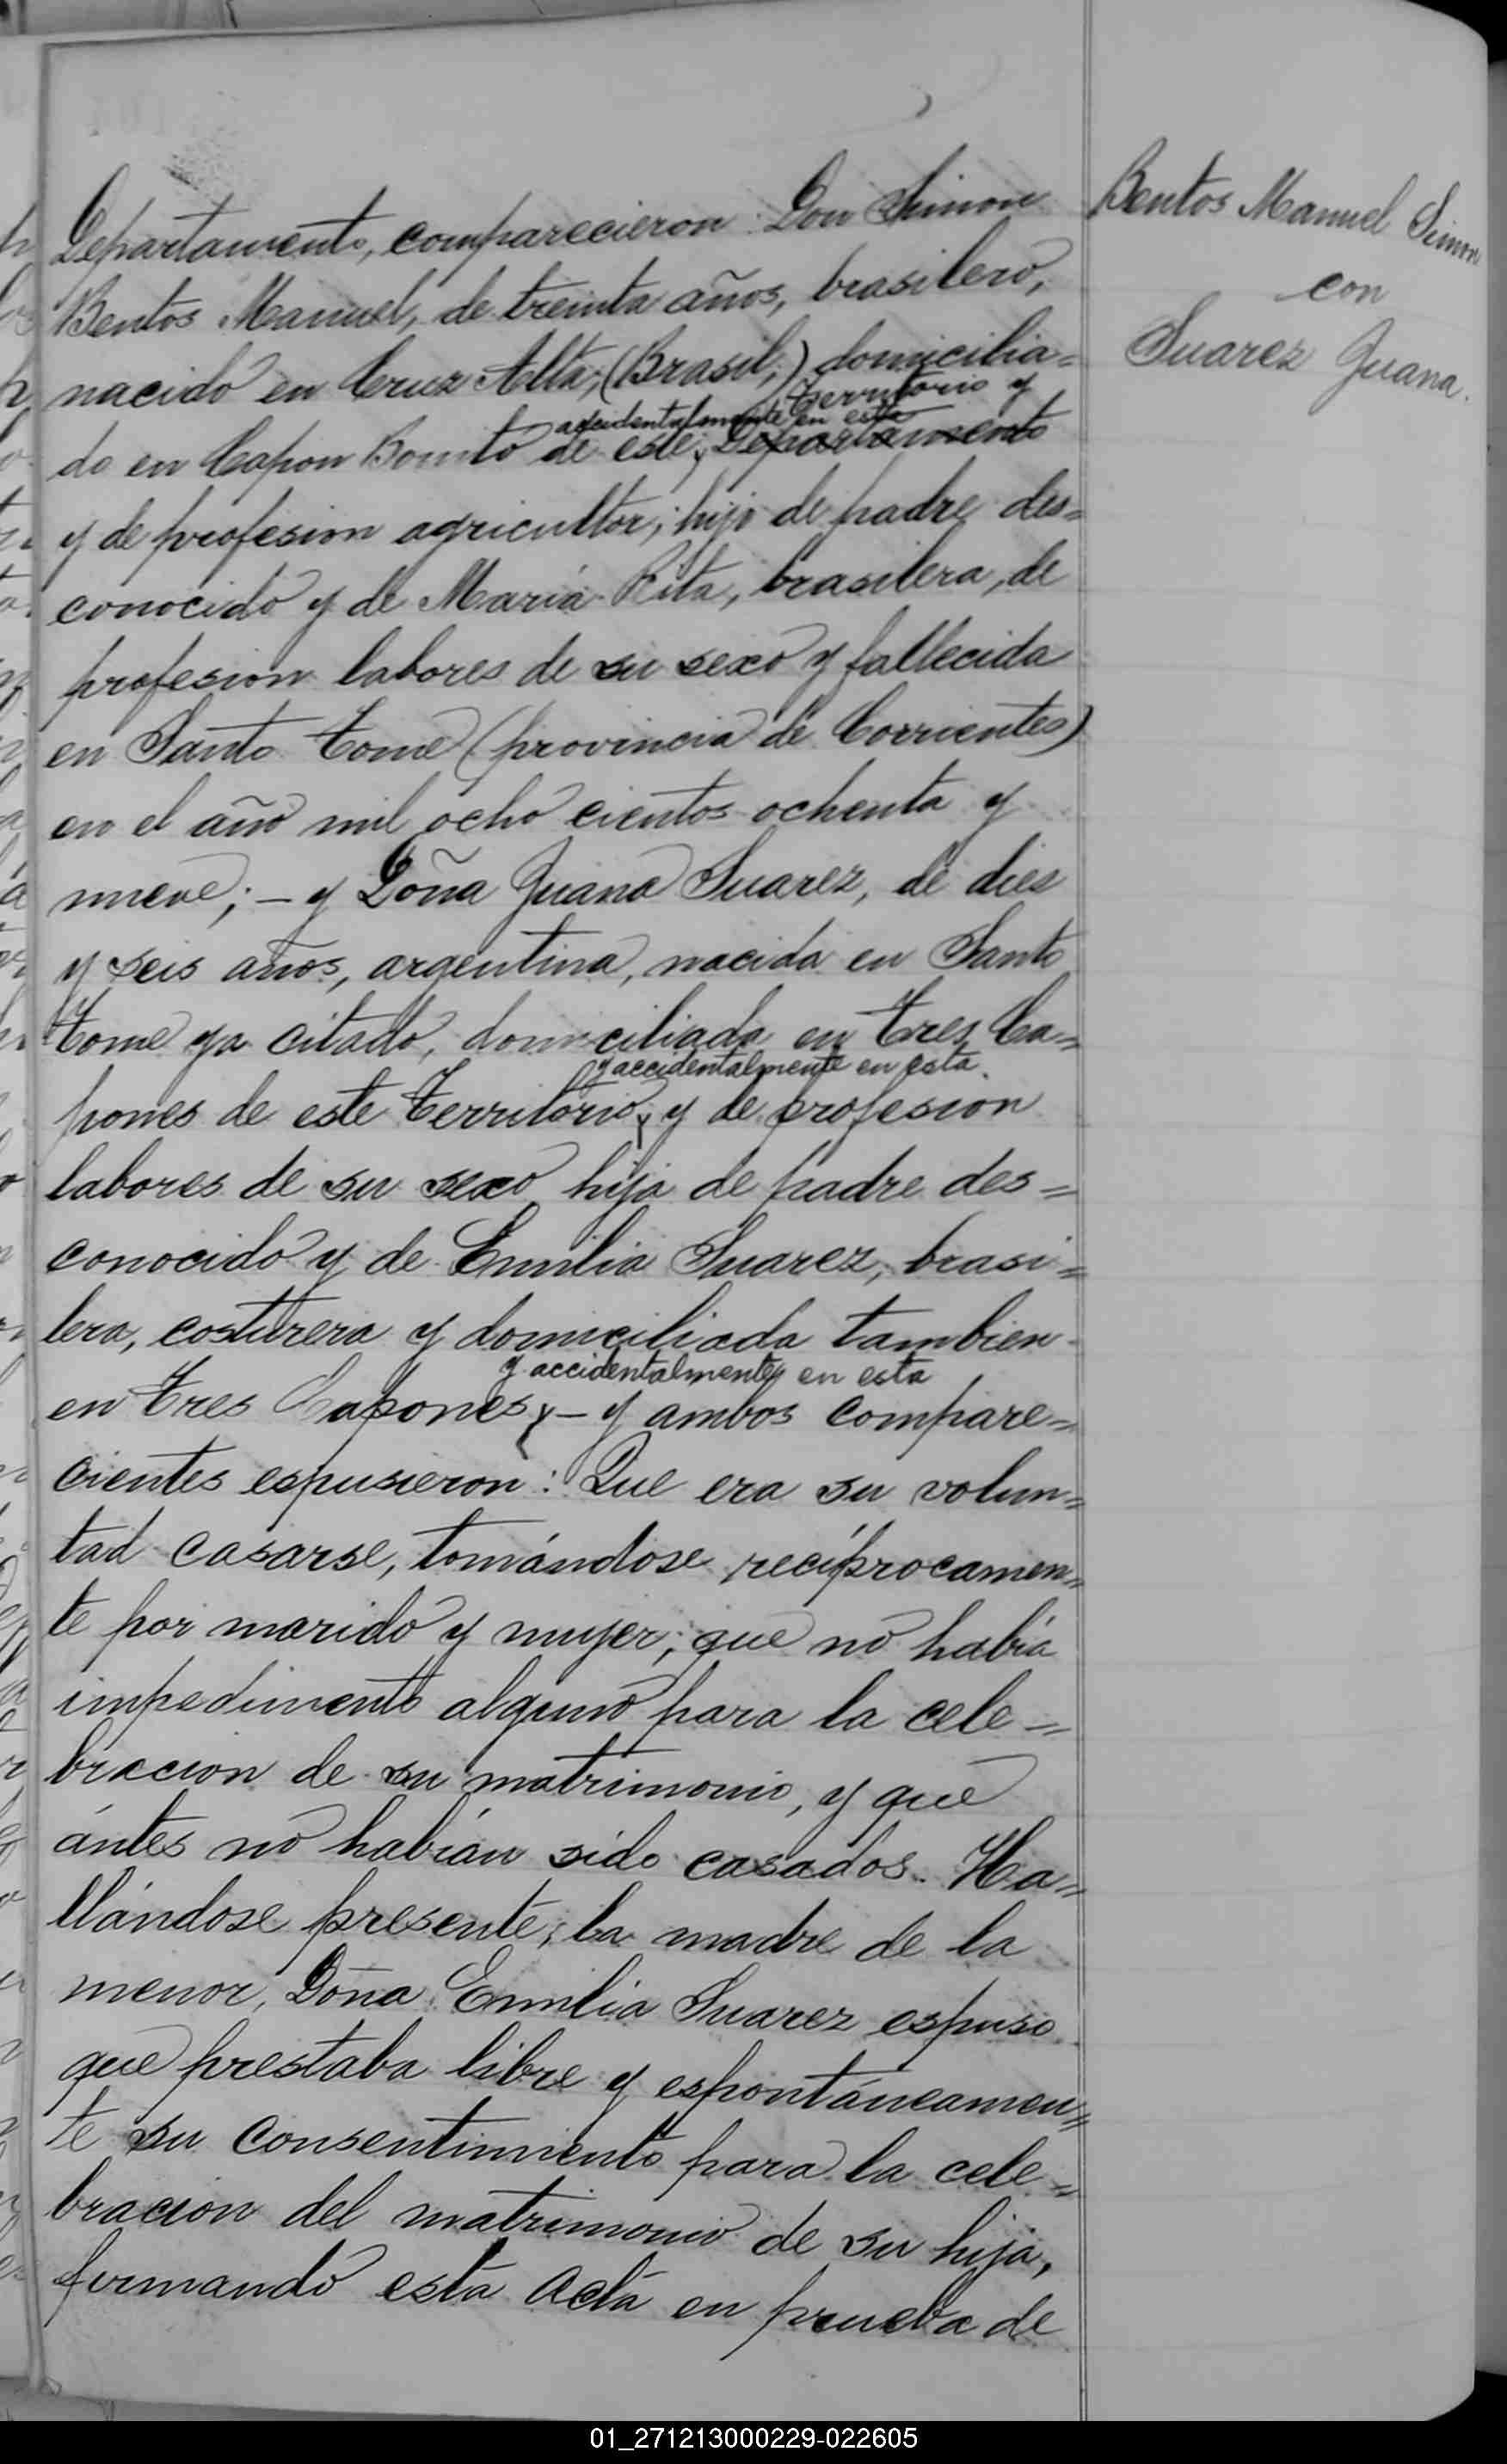 Departamento, comparecieron: Don Simon
Bentos Manuel, de treinta años, brasilero,
nacido en Cruz Alta, (Brasil,) domicilia=
territorio y
accidentalmente en esta
do en Capon Bonito de este, Departamento
y de profesion agricultor; hijo de padre des=
conocido y de María Rita, brasilera, de
profesion labores de su sexo y fallecida
en Santo Tomé (provincia de Corrientes)
en el año mil ocho cientos ochenta y
nueve; – y Doña Juana Suarez, de diez
y seis años, argentina, nacida en Santo
Tomé ya citado, domiciliada en Tres Ca=
y accidentalmente en esta
pones de este territorio, y de profesion
labores de su sexo, hija de padre des=
conocido y de Emilia Suarez, brasi=
lera, costurera y domiciliada tambien
y accidentalmente en esta
en Tres Capones, – y ambos compare=
cientes espusieron: Que era su volun=
tad casarse, tomándose recíprocamen=
te por marido y mujer; que no habia
impedimento alguno para la cele=
bracion de su matrimonio, y que
ántes no habían sido casados. Ha=
llándose presente, la madre de la
menor, Doña Emilia Suarez espuso
que prestaba libre y espontáneamen=
te su consentimiento para la cele=
bracion del matrimonio de su hija,
firmando esta acta en prueba de
Bentos Manuel Simon
con
Suarez Juana.
01_271213000229-022605